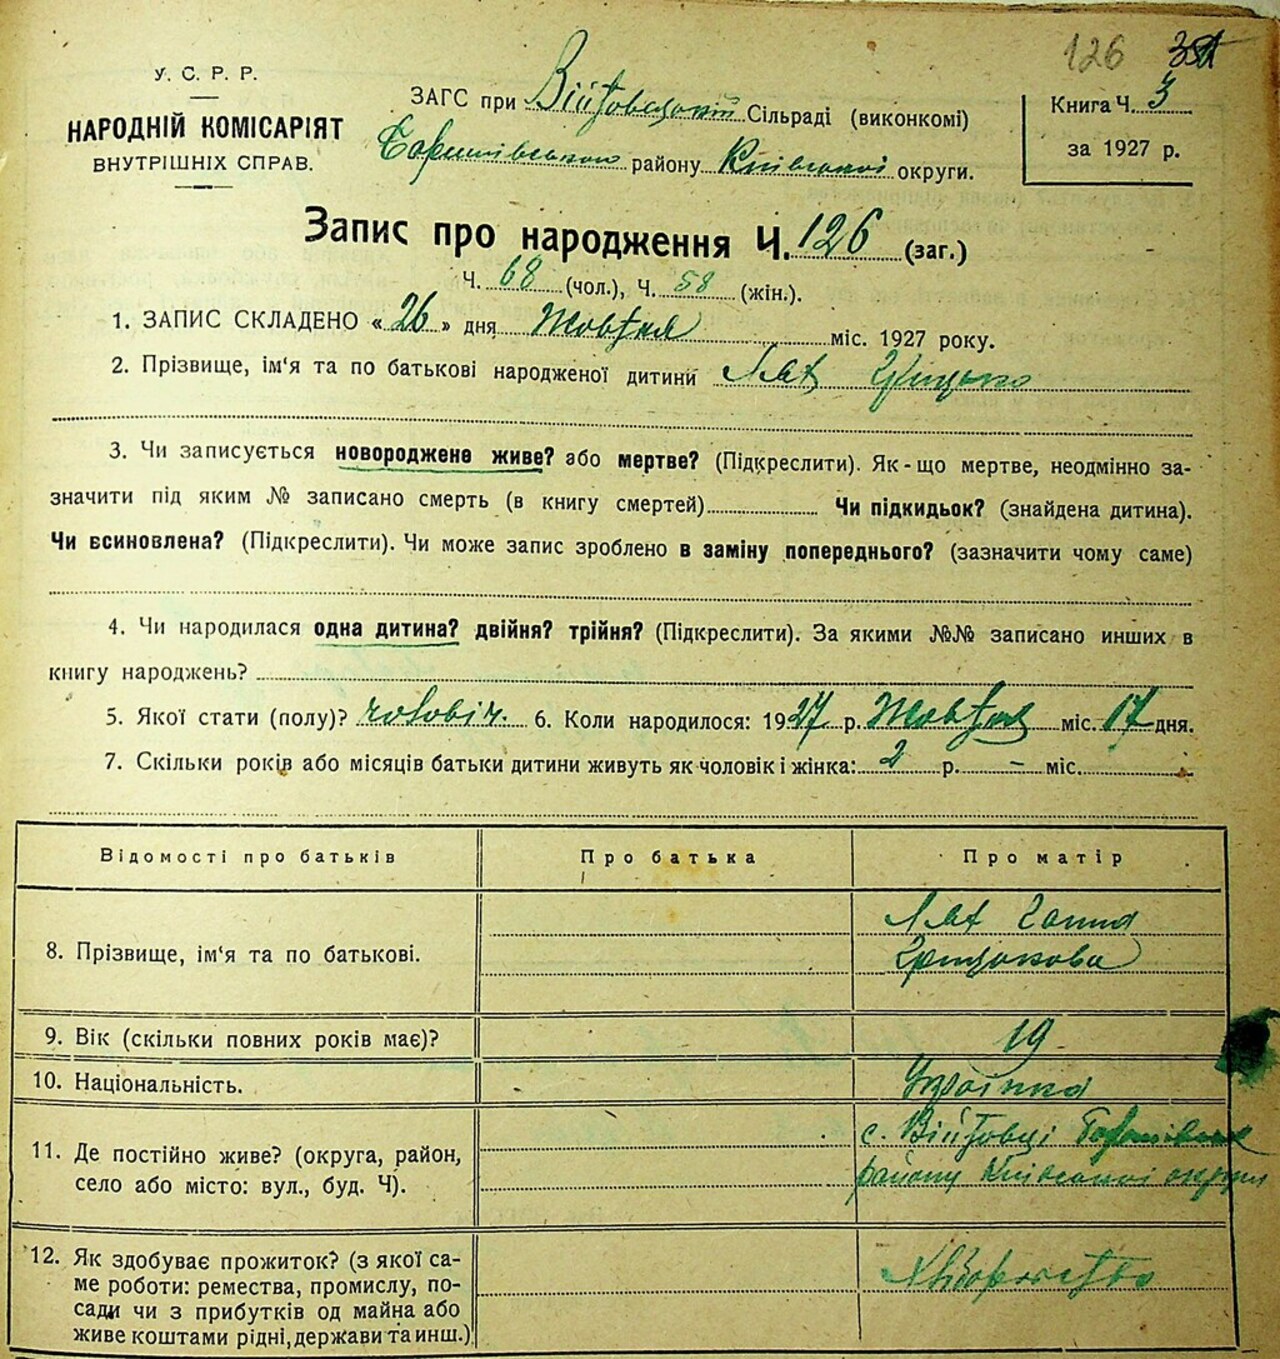 126
У. С. Р. Р.
НАРОДНІЙ КОМІСАРІЯТ
ВНУТРІШНІХ СПРАВ.
ЗАГС при Війтовецькій Сільраді (виконкомі)
Баришівського району Київської округи.
Книга Ч. 3
за 1927 р.
Запис про народження Ч. 126 (заг.)
Ч. 68 (чол.), Ч. 58 (жін.).
1. ЗАПИС СКЛАДЕНО « 26 » дня Жовтня міс. 1927 року.
2. Прізвище, ім'я та по батькові народженої дитини Лях Грицько
3. Чи записується новороджене живе? або мертве? (Підкреслити). Як-що мертве, неодмінно за-
значити під яким № записано смерть (в книгу смертей) Чи підкидьок? (знайдена дитина).
Чи всиновлена? (Підкреслити). Чи може запис зроблено в заміну попереднього? (зазначити чому саме)
4. Чи народилася одна дитина? двійня? трійня? (Підкреслити). За якими №№ записано инших в
книгу народжень?
5. Якої стати (полу)? чоловіч. 6. Коли народилося: 1927 р. Жовтня міс. 17 дня.
7. Скільки років або місяців батьки дитини живуть як чоловік і жінка: 2 р. – міс.
Відомості про батьків Про батька Про матір
8. Прізвище, ім'я та по батькові. Лях Ганна
Грицькова
9. Вік (скільки повних років має)? 19
10. Національність. Українка
11. Де постійно живе? (округа, район,
село або місто: вул., буд. Ч).
с. Війтовці Баришівськ
району Київської округи
12. Як здобуває прожиток? (з якої са-
ме роботи: ремества, промислу, по-
сади чи з прибутків од майна або
живе коштами рідні, держави та инш.)
Хліборобство